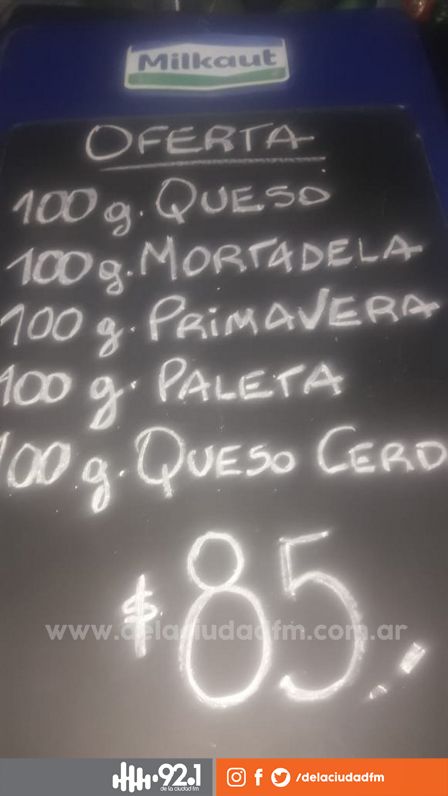 Milkaut
OFERTA
100 g. QUESO
100 g. MORTADELA
100 g. PRIMAVERA
100 g. PALETA
100 g. QUESO CERD
$85,-
www.delaciudadfm.com.ar
92.1 /delaciudadfm
de la ciudad fm